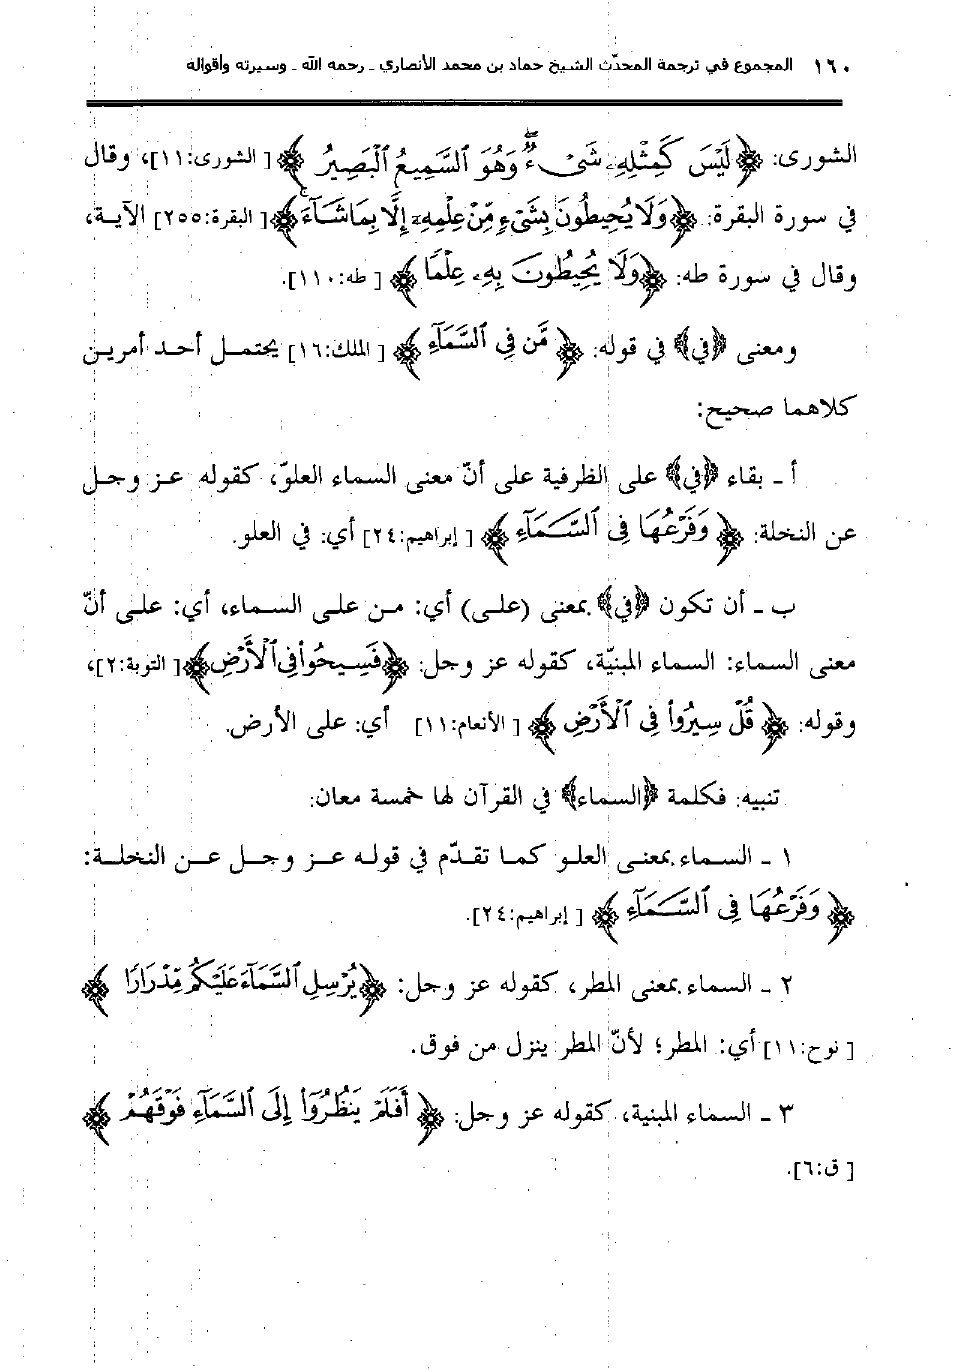 ١٦٠ المجموع في ترجمة المحدّث الشيخ حماد بن محمد الأنصاري ـ رحمه الله ـ وسيرته وأقواله
الشورى: ﴿لَيْسَ كَمِثْلِهِۦ شَىْءٌ ۖ وَهُوَ ٱلسَّمِيعُ ٱلْبَصِيرُ﴾ [الشورى:١١]، وقال
في سورة البقرة: ﴿وَلَا يُحِيطُونَ بِشَىْءٍ مِّنْ عِلْمِهِۦٓ إِلَّا بِمَا شَآءَ﴾ [البقرة:٢٥٥] الآية،
وقال في سورة طه: ﴿وَلَا يُحِيطُونَ بِهِۦ عِلْمًا﴾ [طه:١١٠].
ومعنى ﴿في﴾ في قوله: ﴿مَّن فِى ٱلسَّمَآءِ﴾ [الملك:١٦] يحتمل أحد أمرين
كلاهما صحيح:
أ ـ بقاء ﴿في﴾ على الظرفية على أنّ معنى السماء العلوّ، كقوله عز وجل
عن النخلة: ﴿وَفَرْعُهَا فِى ٱلسَّمَآءِ﴾ [إبراهيم:٢٤] أي: في العلو.
ب ـ أن تكون ﴿في﴾ بمعنى (على) أي: من على السماء، أي: على أنّ
معنى السماء: السماء المبنيّة، كقوله عز وجل: ﴿فَسِيحُوا۟ فِى ٱلْأَرْضِ﴾ [التوبة:٢]،
وقوله: ﴿قُلْ سِيرُوا۟ فِى ٱلْأَرْضِ﴾ [الأنعام:١١] أي: على الأرض.
تنبيه: فكلمة ﴿السماء﴾ في القرآن لها خمسة معان:
١ ـ السماء بمعنى العلو كما تقدّم في قوله عز وجل عن النخلة:
﴿وَفَرْعُهَا فِى ٱلسَّمَآءِ﴾ [إبراهيم:٢٤].
٢ ـ السماء بمعنى المطر، كقوله عز وجل: ﴿يُرْسِلِ ٱلسَّمَآءَ عَلَيْكُم مِّدْرَارًا﴾
[نوح:١١] أي: المطر؛ لأنّ المطر ينزل من فوق.
٣ ـ السماء المبنية، كقوله عز وجل: ﴿أَفَلَمْ يَنظُرُوٓا۟ إِلَى ٱلسَّمَآءِ فَوْقَهُمْ﴾
[ق:٦].